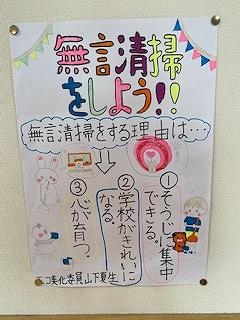 無言清掃
をしよう!!
無言清掃をする理由は…
①そうじに集中
できる。
②学校がきれいに
なる。
③心が育つ。
エコ美化委員山下夏生